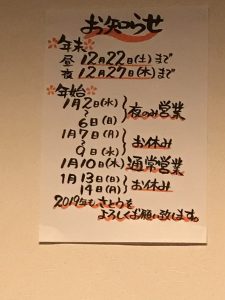 お知らせ
年末
昼 12月22日(土)まで
夜 12月27日(木)まで
年始
1月2日(水)
〜
6日(日)
夜のみ営業
1月7日(月)
〜
9日(水)
お休み
1月10日(木) 通常営業
1月13日(日)
14日(月)
お休み
2019年も さとうを
よろしくお願い致します。